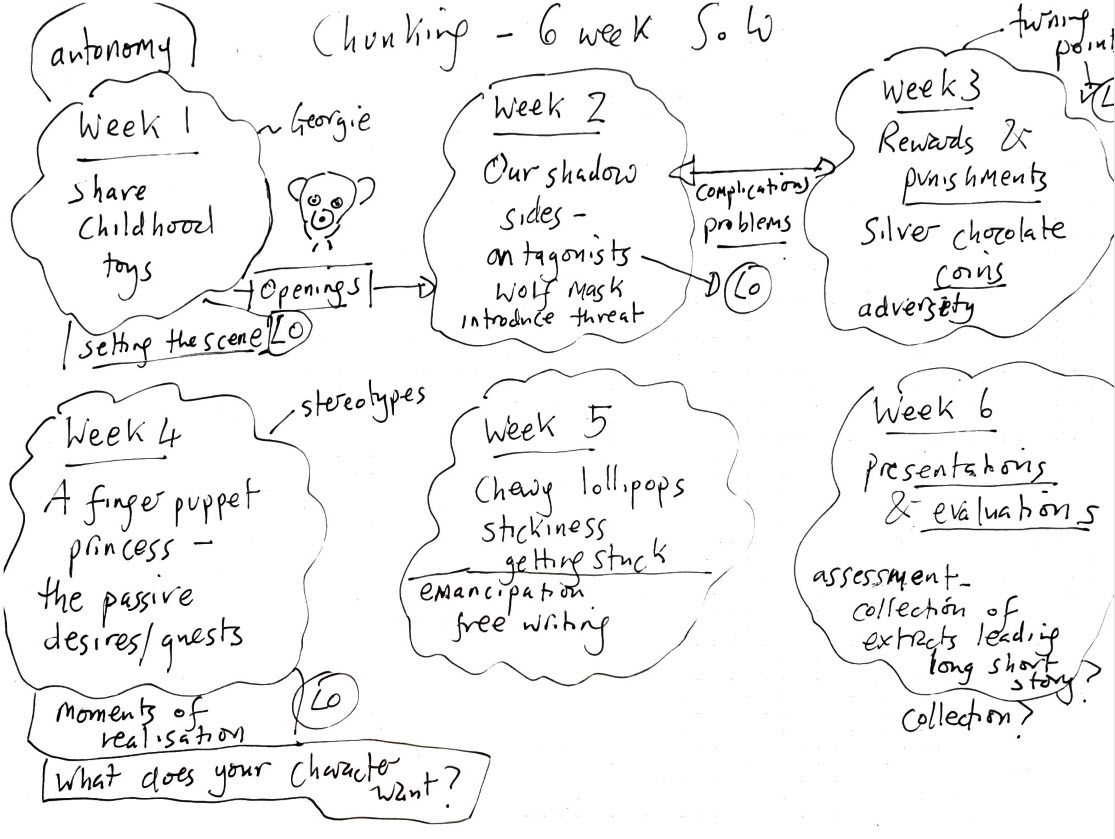 Chunking - 6 week S.o.W
autonomy
Week 1
share
Childhood
toys
~ Georgie
Openings
setting the scene LO
Week 2
Our shadow
sides -
antagonists
Wolf Mask
introduce threat
complications
problems
LO
turning
point
LO
Week 3
Rewards &
punishments
Silver chocolate
coins
adversity
Week 4
stereotypes
A finger puppet
princess -
the passive
desires/quests
LO
moments of
realisation
What does your Character
want?
Week 5
Chewy lollipops
stickiness
getting stuck
emancipation
free writing
Week 6
presentations
& evaluations
assessment -
collection of
extracts leading
long short
story?
collection?